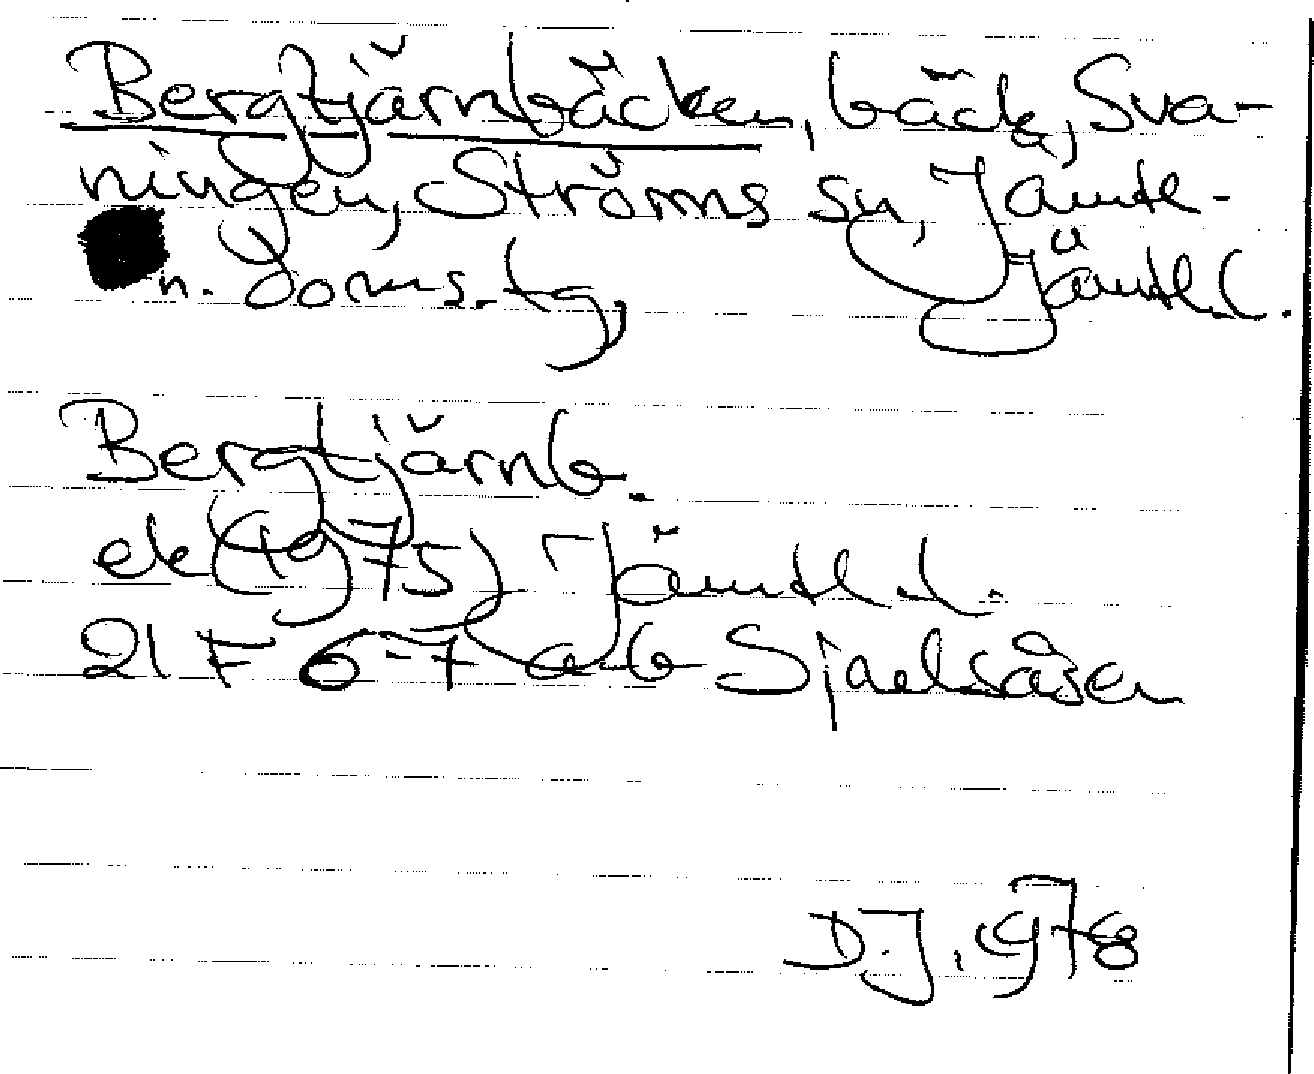 Bergtjärnbäcken, bäck, Sva-
ningen, Ströms sn, Jämtl-
n. Doms. tg, Jämtl.
Bergtjärnb.
ek (1975) Jämtl. l.
21 F 6-7 a-b Sjaelsåsen
D.J. 1978